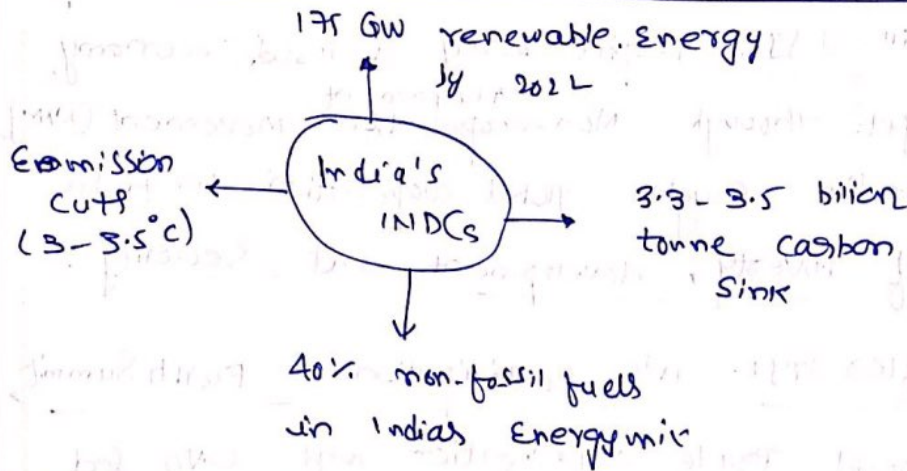 175 GW renewable Energy
by 2022
India's
INDCs
Emission
cuts
(3-3.5°C)
3.3-3.5 bilion
tonne carbon
sink
40% non-fossil fuels
in Indias Energy mix